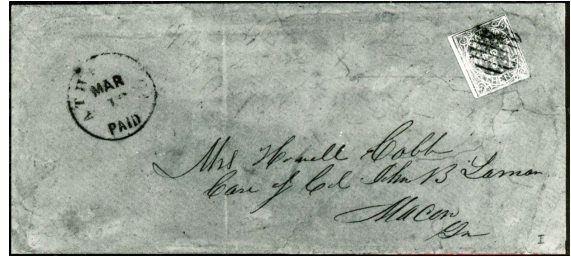 MAR
PAID
Mrs Howell Cobb
Care of Col John B Lamar
Macon
Ga
I